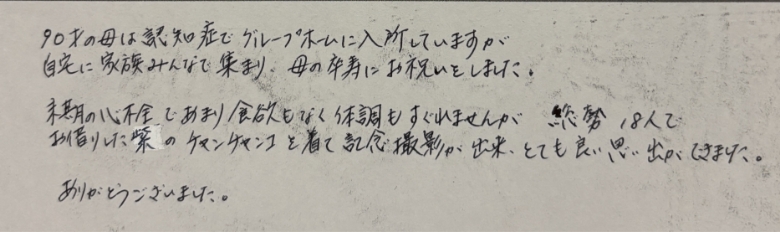 90才の母は認知症でグループホームに入所していますが
自宅に家族みんなで集まり、母の卒寿にお祝いをしました。
末期の心不全であまり食欲もなく体調もすぐれませんが 総勢18人で
お借りした紫のチャンチャンコを着て記念撮影が出来、とても良い思い出ができました。
ありがとうございました。